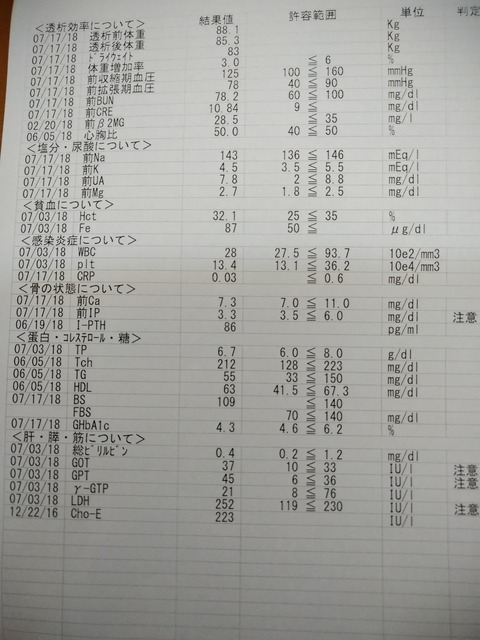 結果値 許容範囲 単位 判定
<透析効率について>
07/17/18 透析前体重 88.1 Kg
07/17/18 透析後体重 85.3 Kg
ﾄﾞﾗｲｳｪｲﾄ 83 Kg
07/17/18 体重増加率 3.0 ≦ 6 %
07/17/18 前収縮期血圧 125 100 ≦ 160 mmHg
07/17/18 前拡張期血圧 78 40 ≦ 90 mmHg
07/17/18 前BUN 78.2 60 ≦ 100 mg/dl
07/17/18 前CRE 10.84 9 ≦ mg/dl
02/20/18 前β2MG 28.5 ≦ 35 mg/l
06/05/18 心胸比 50.0 40 ≦ 50 %
<塩分・尿酸について>
07/17/18 前Na 143 136 ≦ 146 mEq/l
07/17/18 前K 4.5 3.5 ≦ 5.5 mEq/l
07/17/18 前UA 7.8 2 ≦ 8.8 mg/dl
07/17/18 前Mg 2.7 1.8 ≦ 2.5 mg/dl
<貧血について>
07/03/18 Hct 32.1 25 ≦ 35 %
07/03/18 Fe 87 50 ≦ μg/dl
<感染炎症について>
07/03/18 WBC 28 27.5 ≦ 93.7 10e2/mm3
07/03/18 plt 13.4 13.1 ≦ 36.2 10e4/mm3
07/17/18 CRP 0.03 ≦ 0.6 mg/dl
<骨の状態について>
07/17/18 前Ca 7.3 7.0 ≦ 11.0 mg/dl
07/17/18 前IP 3.3 3.5 ≦ 6.0 mg/dl 注意
06/19/18 I-PTH 86 pg/ml
<蛋白・ｺﾚｽﾃﾛｰﾙ・糖>
07/03/18 TP 6.7 6.0 ≦ 8.0 g/dl
06/05/18 Tch 212 128 ≦ 223 mg/dl
06/05/18 TG 55 33 ≦ 150 mg/dl
06/05/18 HDL 63 41.5 ≦ 67.3 mg/dl
07/17/18 BS 109 ≦ 140
FBS 70 ≦ 140 mg/dl
07/17/18 GHbA1c 4.3 4.6 ≦ 6.2 %
<肝・膵・筋について>
07/03/18 総ﾋﾞﾘﾙﾋﾞﾝ 0.4 0.2 ≦ 1.2 mg/dl
07/03/18 GOT 37 10 ≦ 33 IU/l 注意
07/03/18 GPT 45 6 ≦ 36 IU/l 注意
07/03/18 γ-GTP 21 8 ≦ 76 IU/l
07/03/18 LDH 252 119 ≦ 230 IU/l 注意
12/22/16 Cho-E 223 IU/l